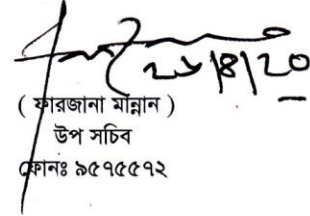 ২৬/৪/২০
( ফারজানা মান্নান )
উপ সচিব
ফোনঃ ৯৫৭৫৫৭২